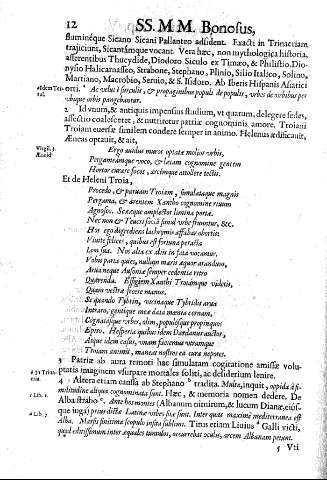 12 SS. M M. Bonosus,
fluminéque Sicano Sicani Pallanteo adsident. Exacti in Trinacriam
trajiciunt, Sicaniámque vocant. Vera hæc, non mythologica historia,
afferentibus Thucydide, Diodoro Siculo ex Timæo, & Philistio, Dio-
nysio Halicarnasseo, Strabone, Stephano, Plinio, Silio Italico, Solino,
Martiano, Macrobio, Servio, & S. Isidoro. Ab Iberis Hispanis Asiatici
orti. Ac velut è surculis, & propaginibus populi de populis, urbes de urbibus per
urbes pangebantur.
2 Id unum, & antiquis impensus studium, vt quarum, delegere sedes,
affectio coalesceret, & nutriretur patriæ cognominis amore. Troiani
Troiam euersæ similem condere semper in animo. Helenus ædificauit,
Æneas optauit, & ait,
Ergo auidus muros optatæ molior vrbis,
Pergameámque voco, & lætam cognomine gentem
Hortor amare focos, arcémque attollere tectis.
Et de Heleni Troia,
Procedo, & paruam Troiam, simulatáque magnis
Pergama, & arentem Xanthi cognomine riuum
Agnosco. Scææque amplector limina portæ.
Nec non & Teucri sociâ simul vrbe fruuntur, &c.
Hos ego digrediens lachrymis affabar obortis:
Viuite felices, quibus est fortuna peracta
Iam sua. Nos alia ex aliis in fata vocamur.
Vobis parta quies, nullum maris æquor arandum,
Arua neque Ausoniæ semper cedentia retro
Quærenda. Effigiem Xanthi Troiámque videtis,
Quam vestræ fecere manus.
Si quando Tybrin, vicináque Tybridis arua
Intraro, gentíque meæ data mœnia cernam,
Cognatásque vrbes, olim, populósque propinquos
Epiro, Hesperia quibus idem Dardanus auctor,
Atque idem casus, vnam faciemus vtramque
Troiam animis, maneat nostros ea cura nepotes.
3 Patriæ ab aura remoti hæc simulatam cogitatione amissæ volu-
ptatis imaginem vsurpare mortales soliti, ac desiderium lenire.
4 Altera etiam caussa ab Stephano tradita. Multa, inquit, oppida è si-
militudine aliqua cognominata sunt. Hæc, & memoria nomen dedere. De
Alba strabo. Ante hos montes (Albanum nimirum, & lucum Dianæ, eiús-
que iuga) prius dictæ Latinæ vrbes sitæ sunt. Inter quas maximè mediterranea est
Alba. Marsis finitima scopulo insita sublimi. Titus etiam Liuius Galli victi,
quod editissimum inter æquales tumulus, occurrebat oculis, arcem Albanam petunt.
5 Vti